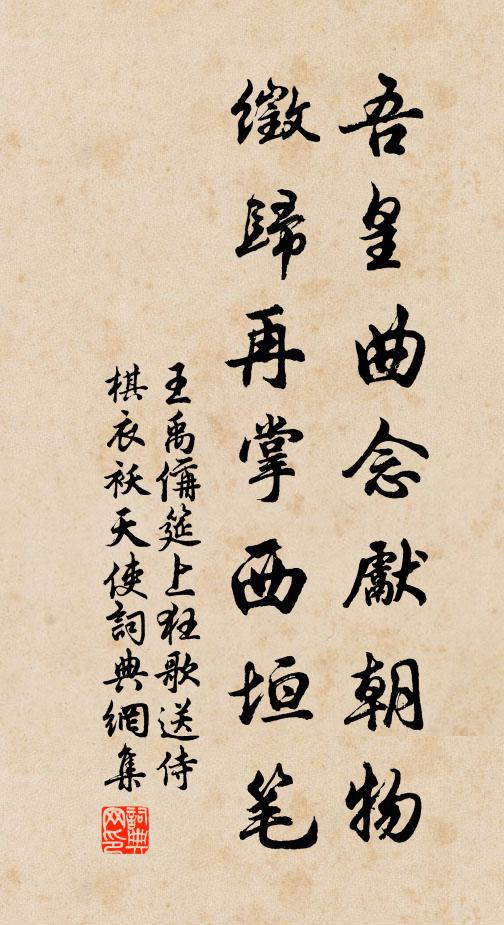 吾皇曲念獻朝物
徵歸再掌西垣笔
王禹偁筵上狂歌送侍
棋衣袄天使詞典網集
詞典网印